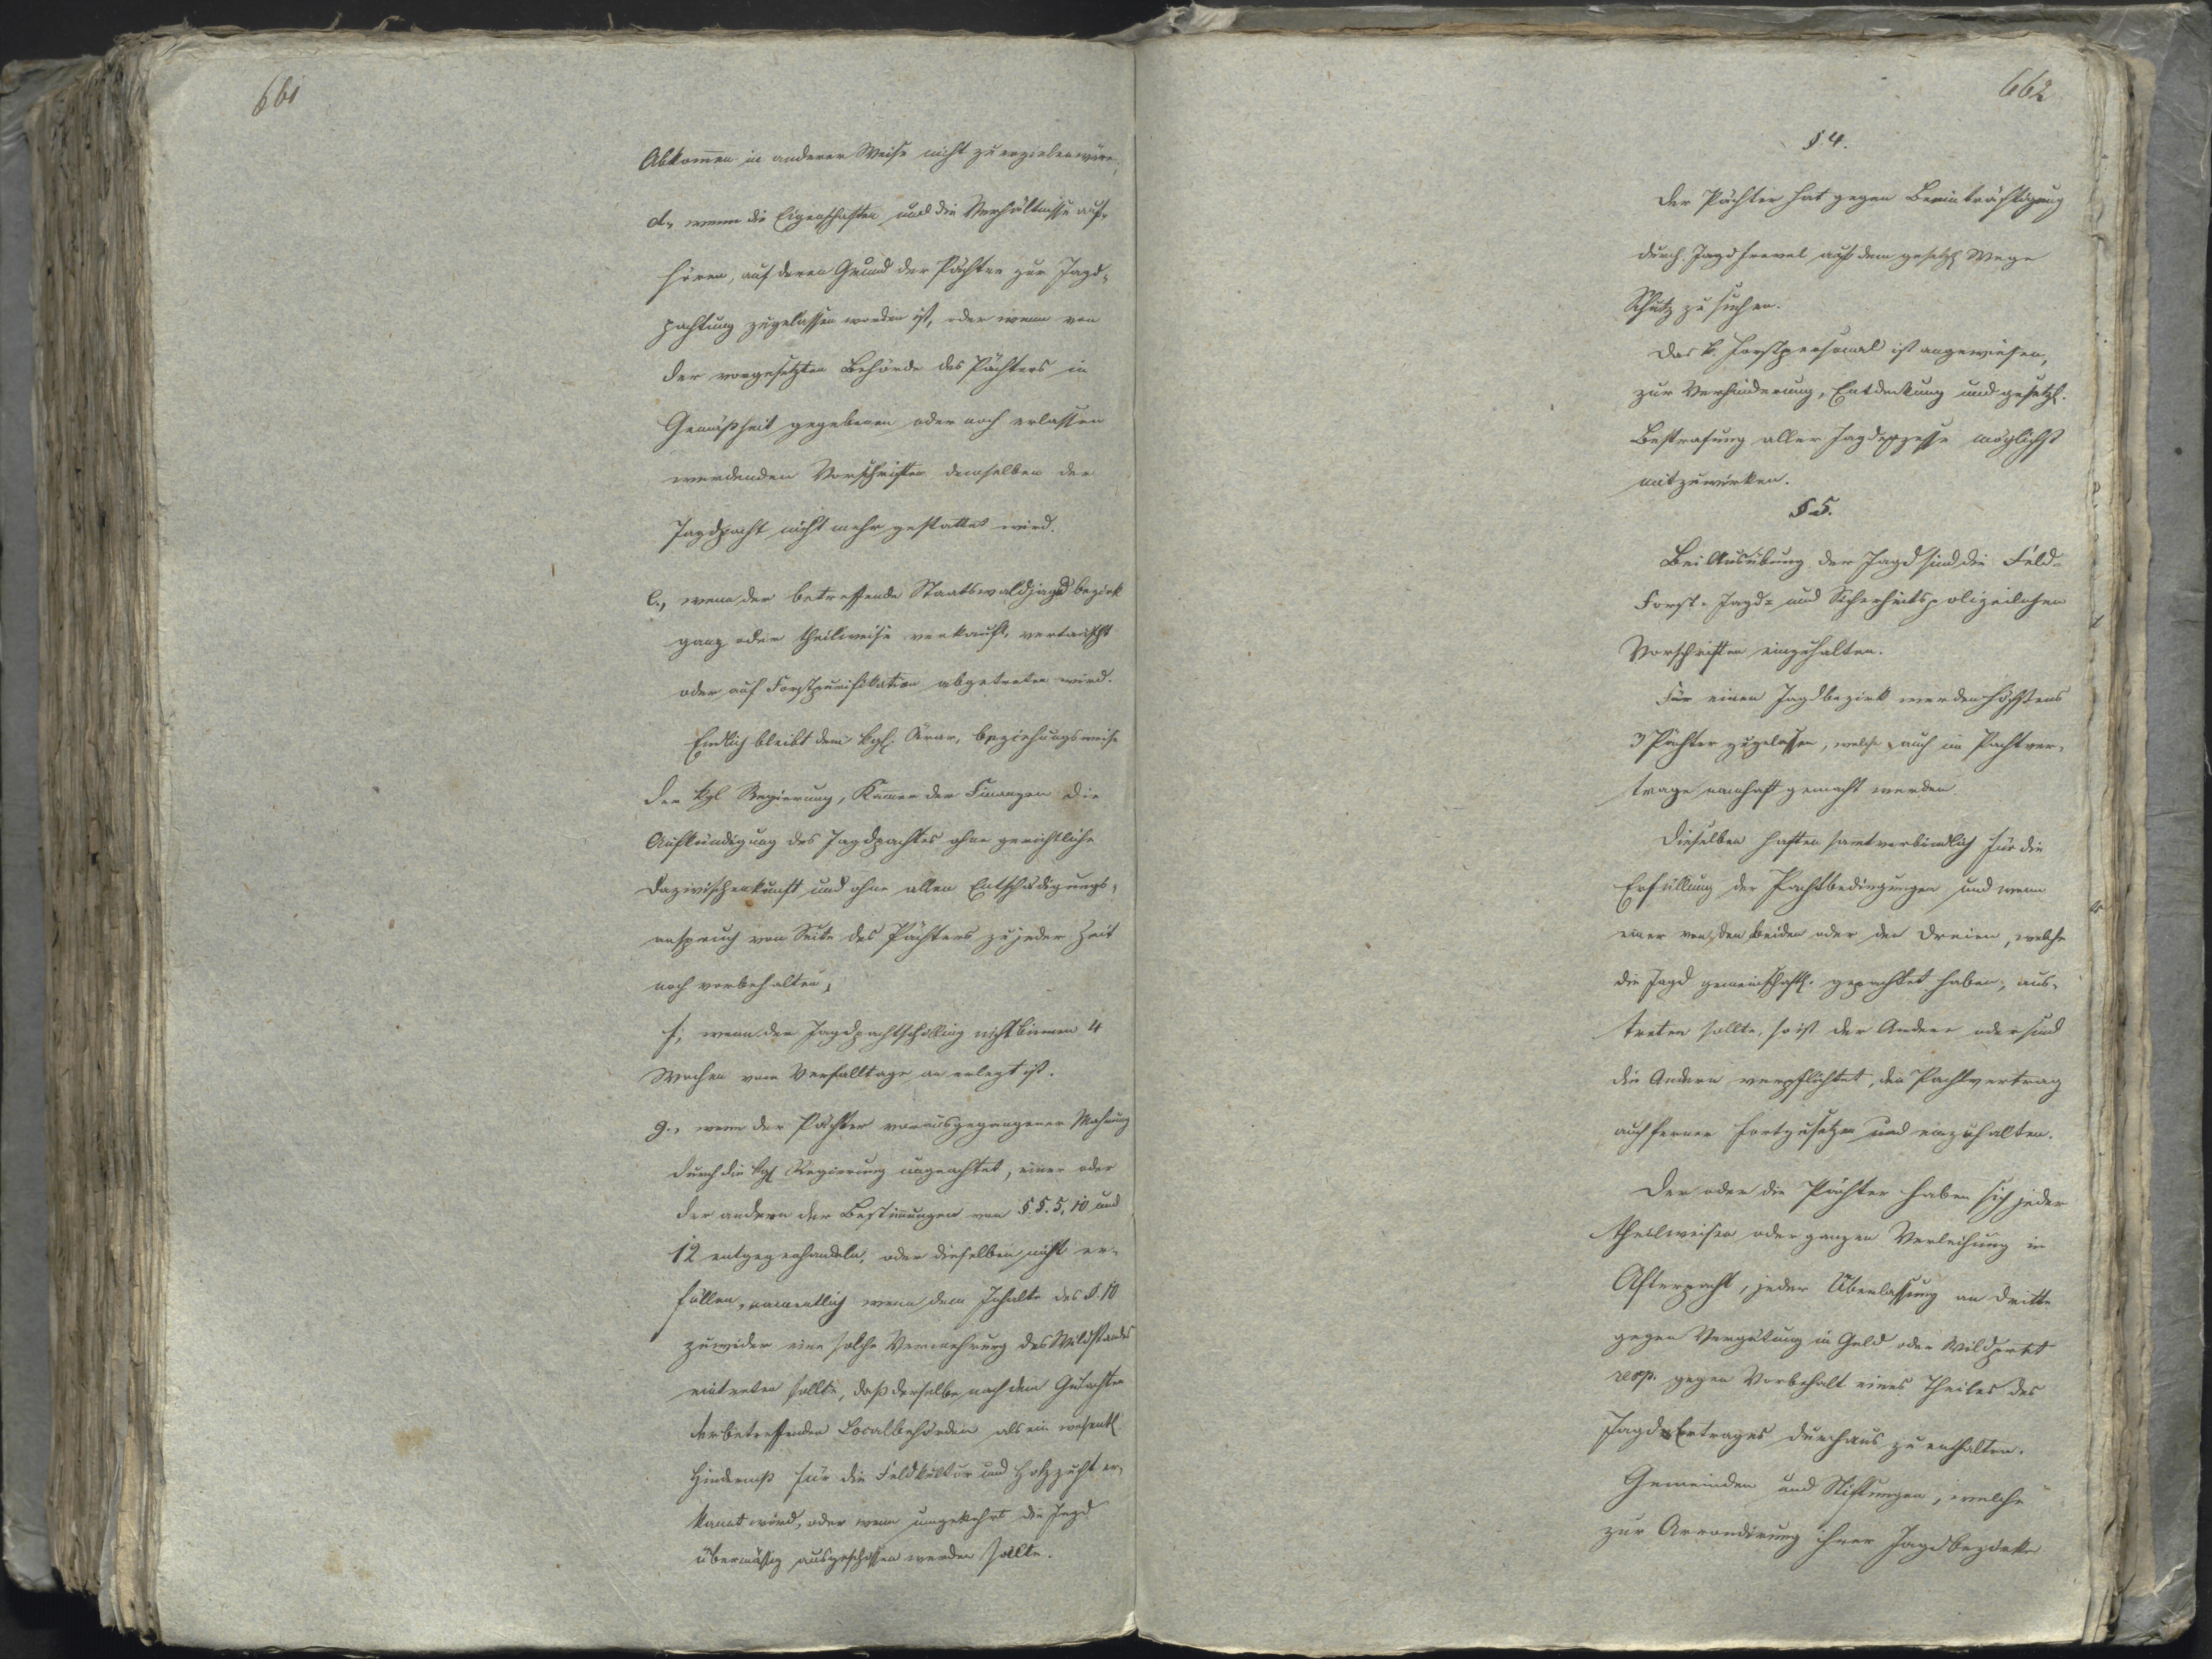 661
Abkom̅en in anderer Weise nicht zu erzielen wäre,
d., wenn die Eigenschaften und die Verhältnisse auf-
hören, auf deren Grund der Pächter zur Jagd-
pachtung zugelassen worden ist, oder wenn von
der vorgesetzten Behörde des Pächters in
Gemäßheit gegebenen oder noch erlassen
werdenden Vorschriften demselben der
Jagdpacht nicht mehr gestattet wird.
e., wenn der betreffende Staatswaldjagdbezirk
ganz oder theilweise verkauft, vertauscht
oder auf Forstpurifikation abgetreten wird.
Endlich bleibt dem kgl. Ärar, beziehungsweise
der kgl Regierung, Kam̅er der Finanzen die
Aufkündigung des Jagdpachtes ohne gerichtliche
Dazwischenkunft und ohne allen Entschädigungs-
anspruch von Seite des Pächters zu jeder Zeit
noch vorbehalten,
f, wenn der Jagdpachtschilling nicht binnen 4
Wochen vom Verfalltage an erlegt ist.
g., wenn der Pächter vorausgegangener Mahnung
durch die kgl Regierung ungeachtet, einer oder
der andern der Bestim̅ungen von §.§. 5, 10 und
12 entgegenhandeln, oder dieselben nicht er-
füllen, namentlich wenn dem Inhalte des §. 10
zuwider eine solche Vermehrung des Wildstandes
eintreten sollte, daß derselbe nach dem Gutachten
der betreffenden Localbehörden als ein wesentl.
Hinderniß für die Feldkultur und Holzzucht er-
kannt wird, oder wenn umgekehrt die Jagd
übermäßig ausgeschossen werden sollte.
662
§. 4.
Der Pächter hat gegen Beeinträchtigung
durch Jagdfrevel auf dem gesetzl Wege
Schutz zu suchen.
Das k. Forstpersonal ist angewiesen,
zur Verhinderung, Entdeckung und gesetzl.
Bestrafung aller Jagdexzesse möglichst
mitzuwirken.
§ 5.
Bei Ausübung der Jagd sind die Feld-
Forst- Jagd- und Sicherheitspolizeilichen
Vorschriften einzuhalten.
Für einen Jagdbezirk werden höchstens
3 Pächter zugelassen, welche auch im Pachtver-
trage namhaft gemacht werden
Dieselben haften sam̅tverbindlich für die
Erfüllung der Pachtbedingungen und wenn
einer von den Beiden oder den Dreien, welche
die Jagd gemeinschaftl. gepachtet haben, aus-
treten sollte, so ist der Andere oder sind
die Andern verpflichtet, den Pachtvertrag
auch ferner fortzusetzen und einzuhalten.
Der oder die Pächter haben sich jeder
theilweisen oder ganzen Verleihung in
Afterpacht, jeder Überlassung an Dritte
gegen Vergütung in Geld oder Wildpret
resp. gegen Vorbehalt eines Theiles des
Jagd-Ertrages durchaus zu enthalten.
Gemeinden und Stiftungen, welche
zur Arrondirung ihrer Jagdbezirke